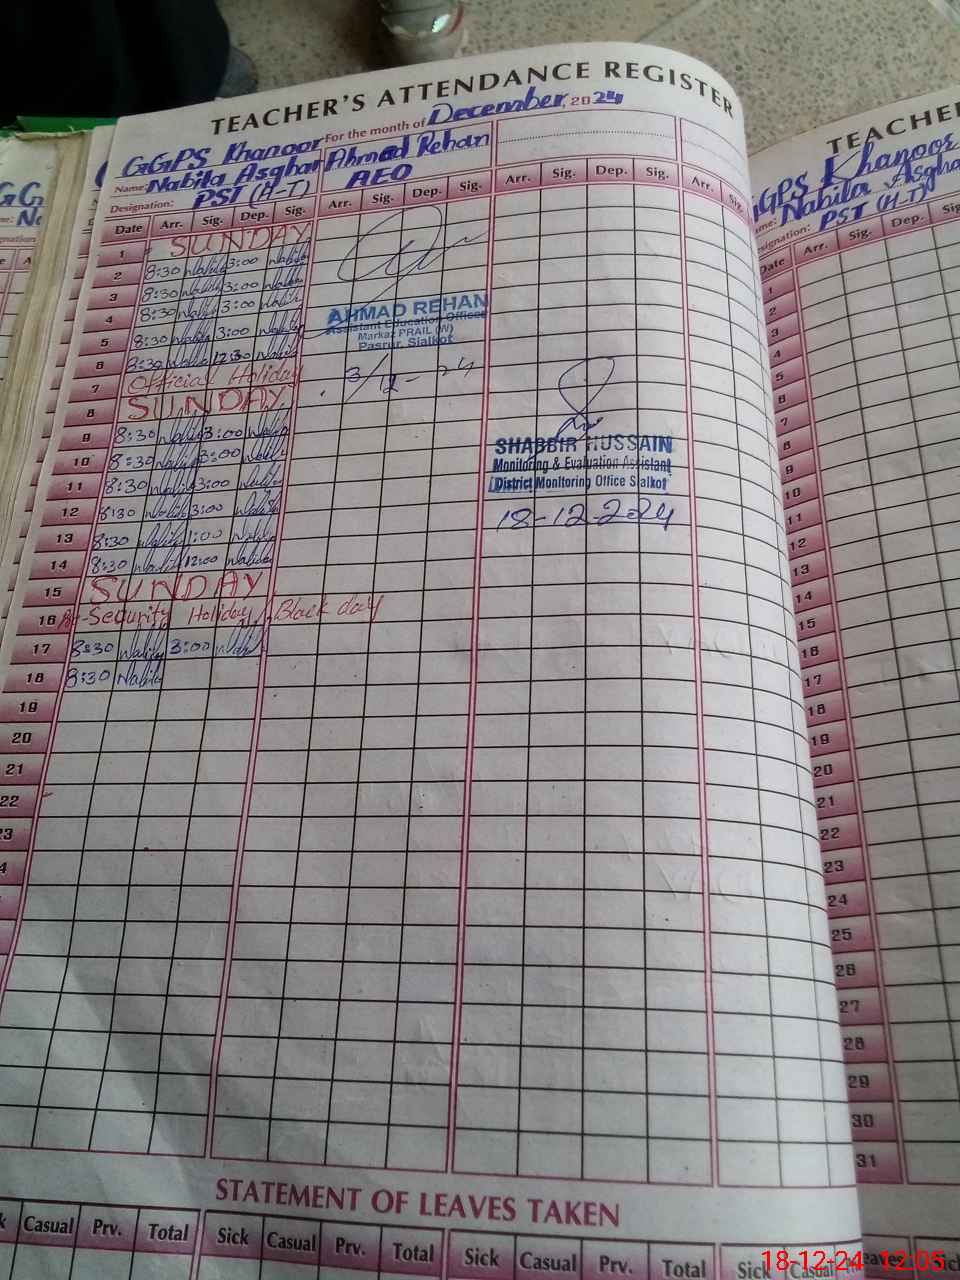 TEACHER'S ATTENDANCE REGISTER
For the month of December, 2024
GGPS Khanoor
Name: Nabila Asghar Ahmad Rehan
Designation: PST (H-T) AEO
Date Arr. Sig. Dep. Sig. Arr. Sig. Dep. Sig. Arr. Sig. Dep. Sig. Arr. Sig.
1 SUNDAY
2 8:30 Nabila 3:00 Nabila
3 8:30 Nabila 3:00 Nabila
4 8:30 Nabila 3:00 Nabila
5 8:30 Nabila 3:00 Nabila
6 8:30 Nabila 12:30 Nabila
7 Official Holiday
8 SUNDAY
9 8:30 Nabila 3:00 Nabila
10 8:30 Nabila 3:00 Nabila
11 8:30 Nabila 3:00 Nabila
12 8:30 Nabila 3:00 Nabila
13 8:30 Nabila 1:00 Nabila
14 8:30 Nabila 12:00 Nabila
15 SUNDAY
16 Security Holiday / Black day
17 8:30 Nabila 3:00 Nabila
18 8:30 Nabila
19
20
21
22
23
AHMAD REHAN
Assistant Education Officer
Markaz PRAIL (W)
Pasrur, Sialkot
3/12-24
SHABBIR HUSSAIN
Monitoring & Evaluation Assistant
District Monitoring Office Sialkot
18-12-2024
STATEMENT OF LEAVES TAKEN
Casual Prv. Total Sick Casual Prv. Total Sick Casual Prv. Total Sick Casual
TEACHER
GGPS Khanoor
Nabila Asghar
PST (H-T)
Date Arr. Sig. Dep.
1
2
3
4
5
6
7
8
9
10
11
12
13
14
15
16
17
18
19
20
21
22
23
24
25
26
27
28
29
30
31
18-12-24 12:05